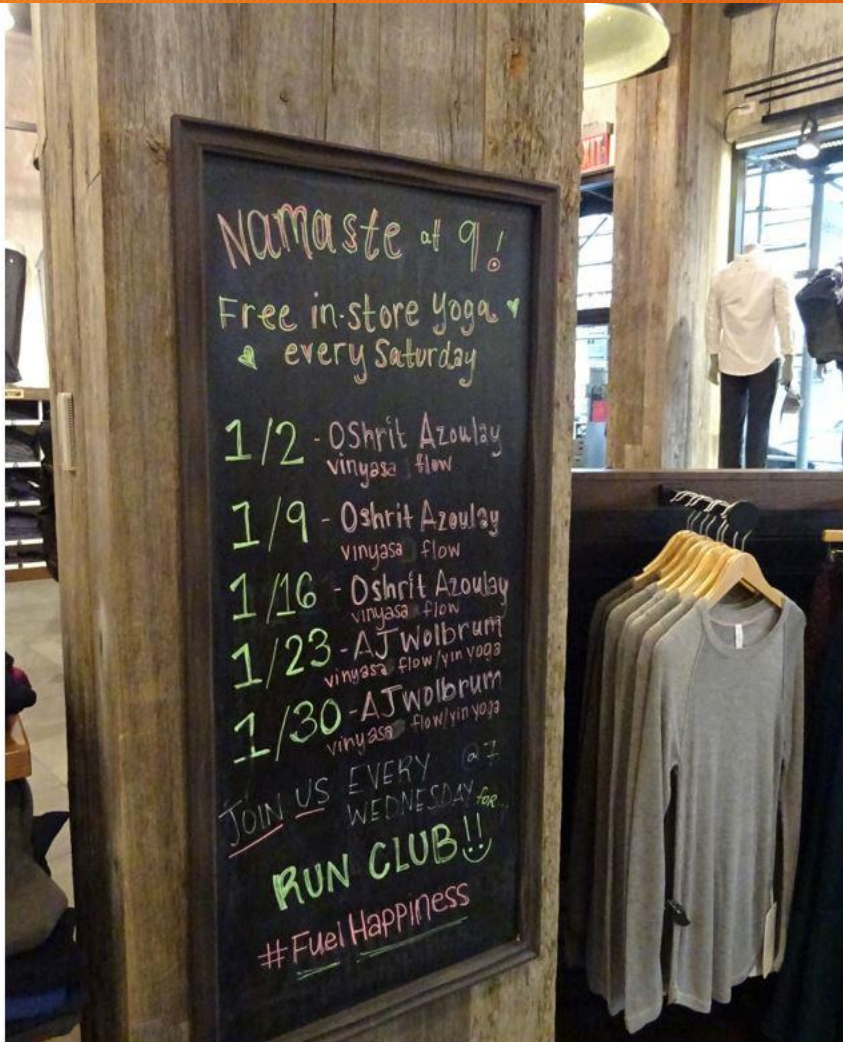 Namaste at 9!
Free in-store Yoga
every Saturday
1/2 - Oshrit Azoulay
vinyasa flow
1/9 - Oshrit Azoulay
vinyasa flow
1/16 - Oshrit Azoulay
vinyasa flow
1/23 - AJ Wolbrum
vinyasa flow/yin yoga
1/30 - AJ Wolbrum
vinyasa flow/yin yoga
JOIN US EVERY @7
WEDNESDAY for..
RUN CLUB!!
#FuelHappiness